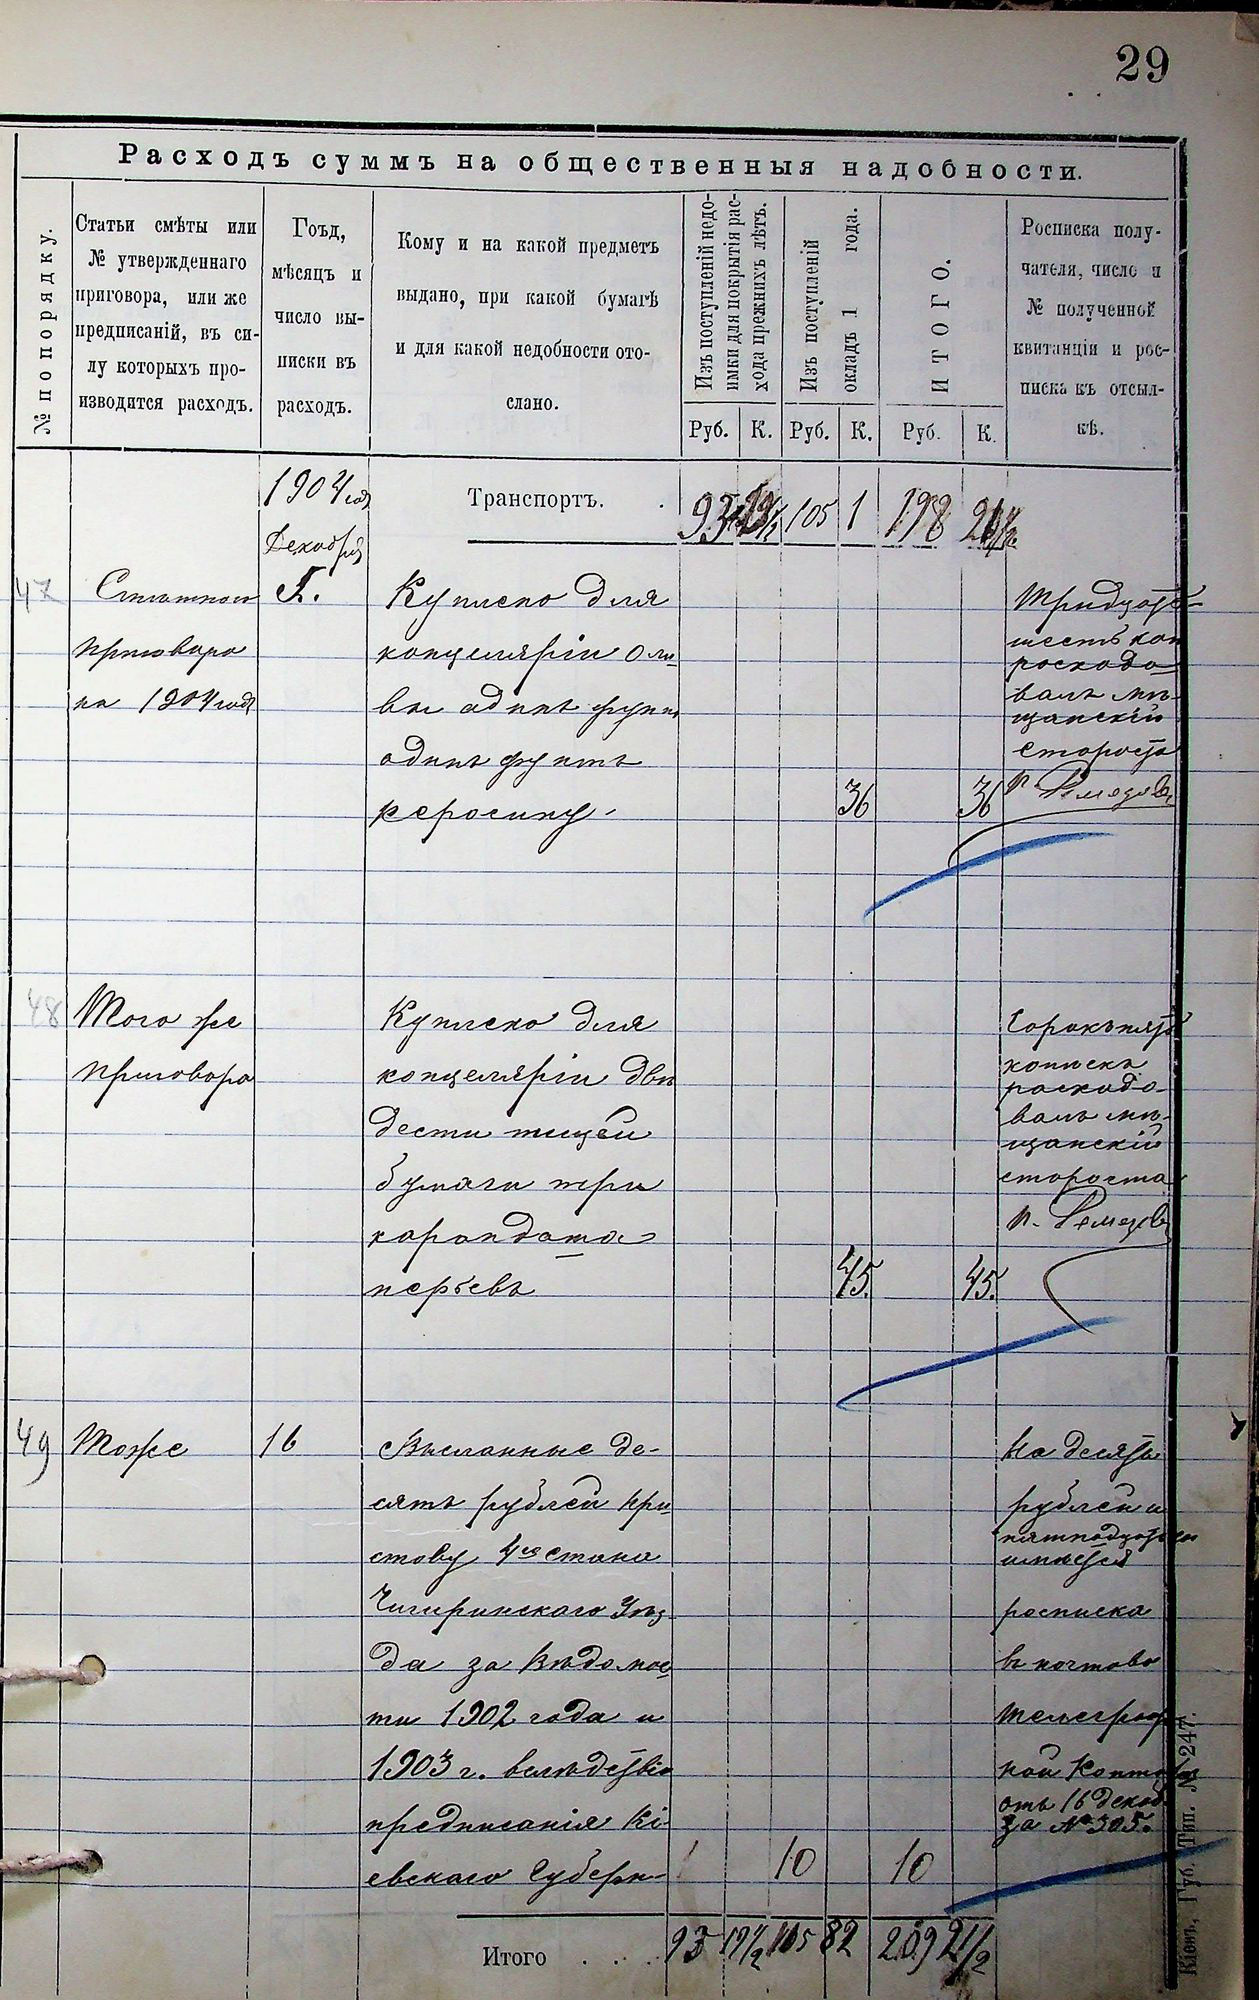 29
Расходъ суммъ на общественныя надобности.
№ по порядку.
Статьи смѣты или
№ утвержденнаго
приговора, или же
предписаній, въ си-
лу которыхъ про-
изводится расходъ.
Гоъд,
мѣсяцъ и
число вы-
писки въ
расходъ.
Кому и на какой предметъ
выдано, при какой бумагѣ
и для какой недобности ото-
слано.
Изъ поступленій недо-
имки для покрытія рас-
хода прежнихъ лѣтъ.
Изъ поступленій
окладъ 1 года.
ИТОГО.
Росписка полу-
чателя, число и
№ полученной
квитанціи и рос-
писка къ отсыл-
кѣ.
Руб. К. Руб. К. Руб. К.
1904 год
Транспортъ. 105 1 198
Декабря
47
5.
приговора
на 1904 года
Куплено для
канцеляріи
одинъ фунтъ
керосину
36 36
Тридцать
шесть коп
расходо-
валъ мѣ-
щанскій
староста
48
Того же
приговора
Куплено для
канцеляріи двѣ
дести писчей
бумаги три
карандаша
перьевъ
45. 45.
Сорокъ пять
копѣекъ
расходо-
валъ мѣ-
щанскій
староста
49
Тоже
16
Высланные де-
сять рублей при
ставу 4го стана
Чигиринскаго Уѣз
да за Вѣдомос
ти 1902 года и
1903 г. вслѣдствіе
предписанія Кі-
евскаго Губерн-
10 10
На десять
рублей и
пятнадцать
имѣется
росписка
въ почтово
телеграф
ной Конторы
отъ 16 декаб
за № 305.
Итого 93 19 1/2 115 82 209 21/2
Кіевъ, Губ. Тип. № 247.